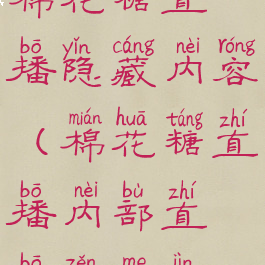 棉花糖直
bō yǐn cáng nèi róng
播隐藏内容
mián huā táng zhí
（棉花糖直
bō nèi bù zhí
播内部直
bō zěn me jìn